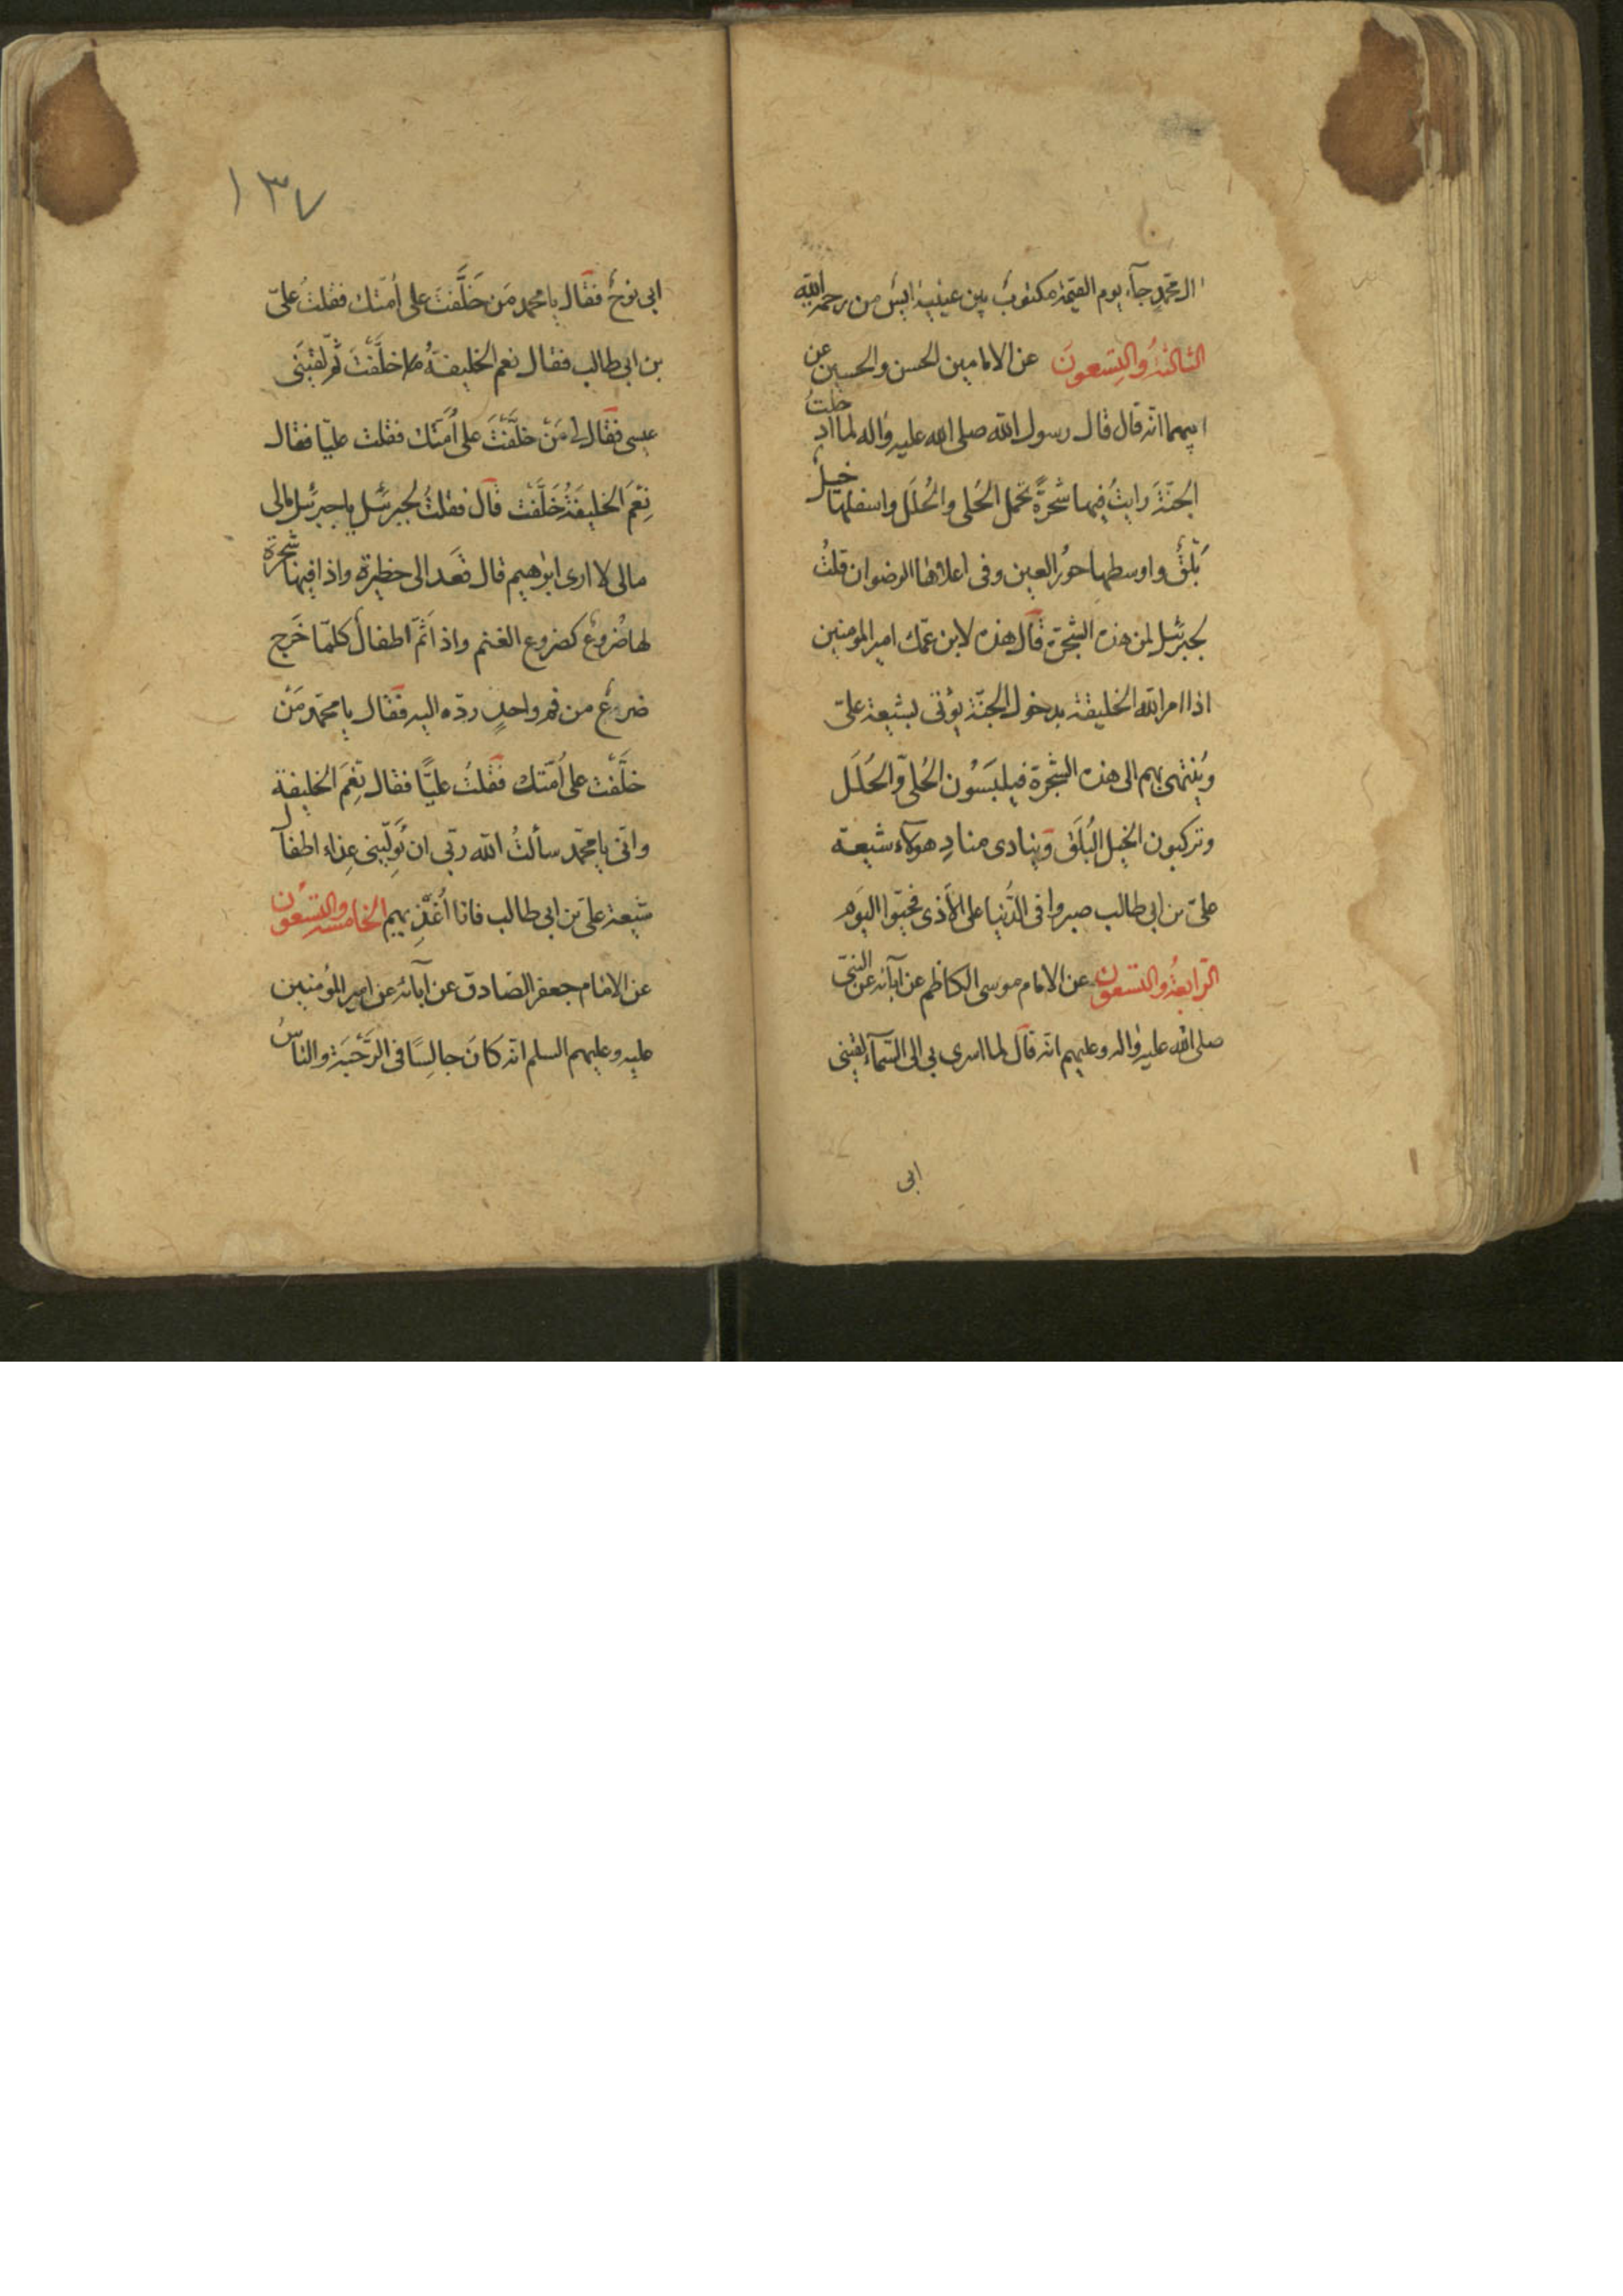 ال محمد جآء يوم القيمة مكتوبٌ بين عينيه ايسٌ من رحمة الله
الثالثةُ والتسعونَ عن الامامين الحسن والحسين عن
ابيهما انه قال قال رسول الله صلى الله عليه واله لما ادخلتُ
الجنّةَ رايتُ فيها شجرةً تحمل الحُلى والحُلَل واسفلها خيلٌ
بَلَقٌ واوسطها حورُ العين وفى اعلاها الرضوان قلتُ
لجبرئيل لمن هذه الشجرة قال هذه لابن عمّك امير المومنين
اذا امر الله الخليقة بدخول الجنّة يؤتى بشيعة علىّ
ويُنتهى بهم الى هذه الشجرة فيلبَسُون الحُلىّ والحُلَل
وتركبون الخيل البُلَق وينادى منادٍ هولآء شيعة
علىّ بن ابى طالب صبروا فى الدُّنيا على الاَذى فحبّوا اليَوم
الرّابعةُ والتسعون عن الامام موسى الكاظم عن آبآئه عن النبىّ
صلى الله عليه واله وعليهم انه قال لما اسرى بى الى السّمآء لقينى
ابى
١٣٧
ابى نوحٌ فقال يا محمد مَن خَلَّفتَ على اُمّتك فقلتُ علىّ
بن ابى طالب فقال نعم الخليفةُ خلَّفتَ ثمّ لقيَنى
عيسى فقال لى مَنْ خلَّفْتَ على اُمّتك فقلت عليّا فقال
نِعْمَ الخليفَةُ خَلَّفْت قال فقلتُ لجبرئيل يا جبرئيل مالى
مالى لا ارى ابرٰهيم قال فَعَد الى حظيرة واذا فيها شجرة
لها ضُروعٌ كضروع الغنم واذا ثَمَّ اطفالٌ كلّما خَرج
ضرعٌ من فم واحدٍ ردّه اليه فقال يا محمّد مَنْ
خلَّفْت على اُمّتك فقلتُ عليًّا فقال نِعْمَ الخليفة
وانّى يا محمّد سألتُ الله ربّى ان يُولّينى غذاء اطفال
شيعة علىّ بن ابى طالب فانا اُغَذّيهم الخامسة والتسعون
عن الامام جعفر الصّادق عن آبآئه عن امير المؤمنين
عليه وعليهم السلم انه كانَ جالِسًا فى الرَّحْبَة والناسُ